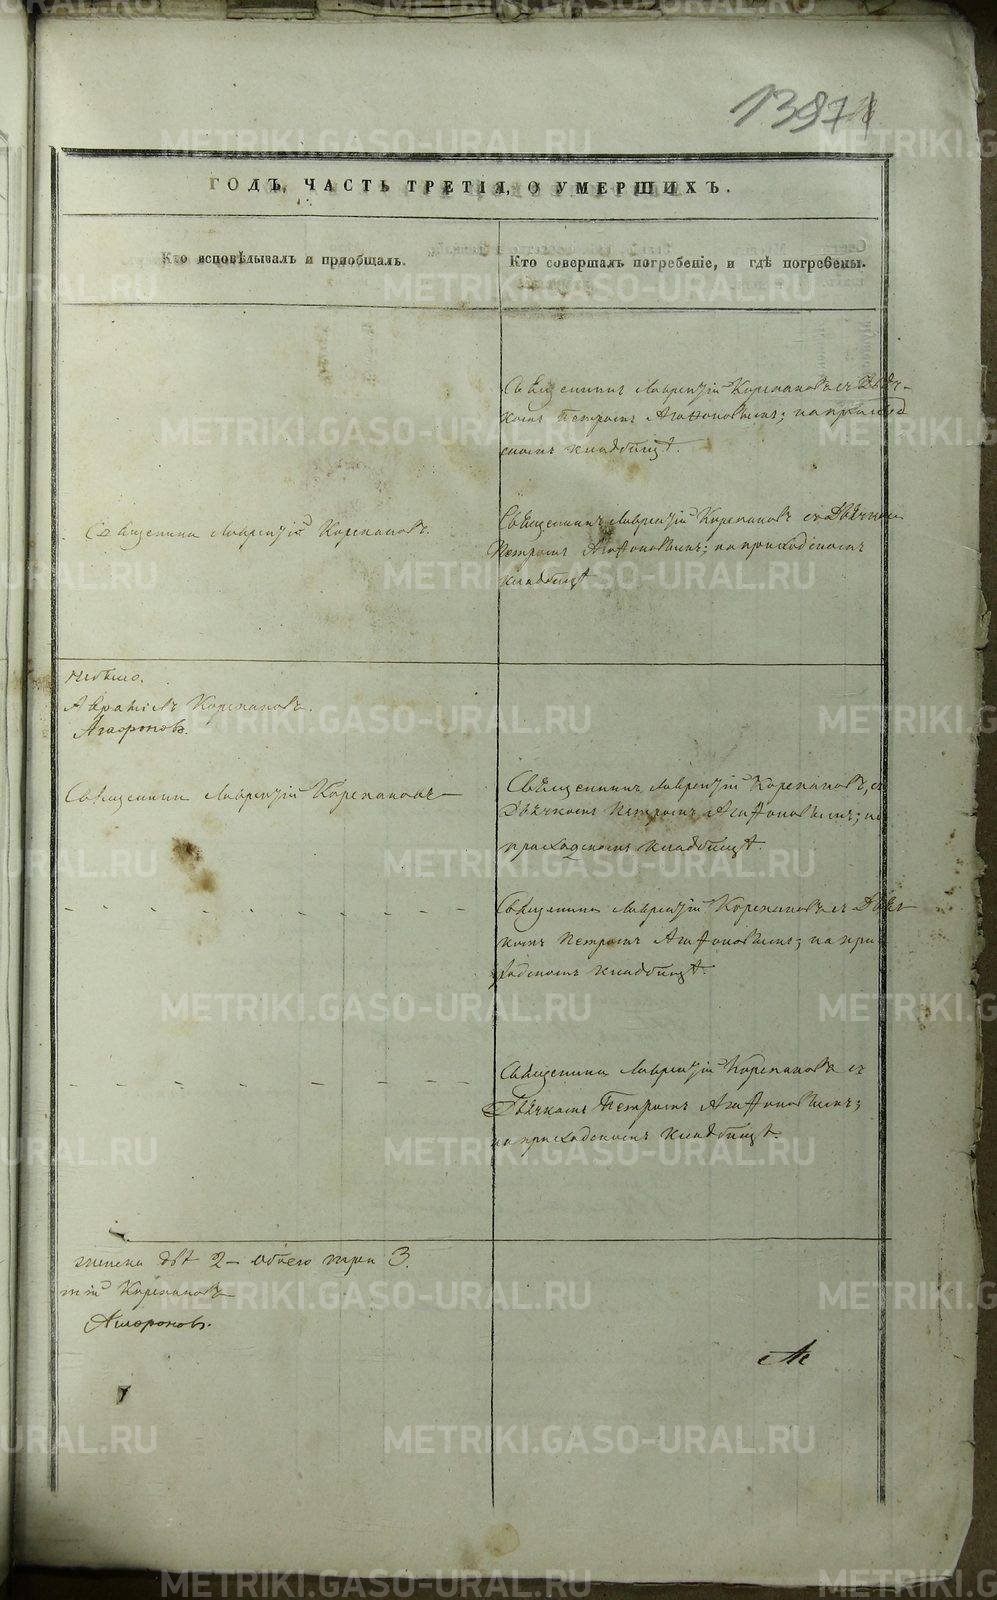 1397
ГОДЪ, ЧАСТЬ ТРЕТІЯ, О УМЕРШИХЪ.
Кто исповѣдывалъ и пріобщалъ.
Кто совершалъ погребеніе, и гдѣ погребены.
Священникъ Лаврентій Корепановъ съ Дьяч-
комъ Петромъ Агафоновымъ; на приход
скомъ кладбищѣ.
Священникъ Лаврентій Корепановъ.
Священникъ Лаврентій Корепановъ съ Дьячкомъ
Петромъ Агафоновымъ; на приходскомъ
кладбищѣ
небыло.
Корепановъ.
Агафоновъ.
Священникъ Лаврентій Корепановъ
Священникъ Лаврентій Корепановъ, съ
Дьячкомъ Петромъ Агафоновымъ; на
приходскомъ кладбищѣ.
Священникъ Лаврентій Корепановъ съ Дьяч
комъ Петромъ Агафоновымъ; на при
ходскомъ кладбищѣ.
Священникъ Лаврентій Корепановъ съ
Дьячкомъ Петромъ Агафоновымъ;
на приходскомъ кладбищѣ.
женска двѣ 2 – обоего три 3.
тій Корепановъ
Агафоновъ.
METRIKI.GASO-URAL.RU